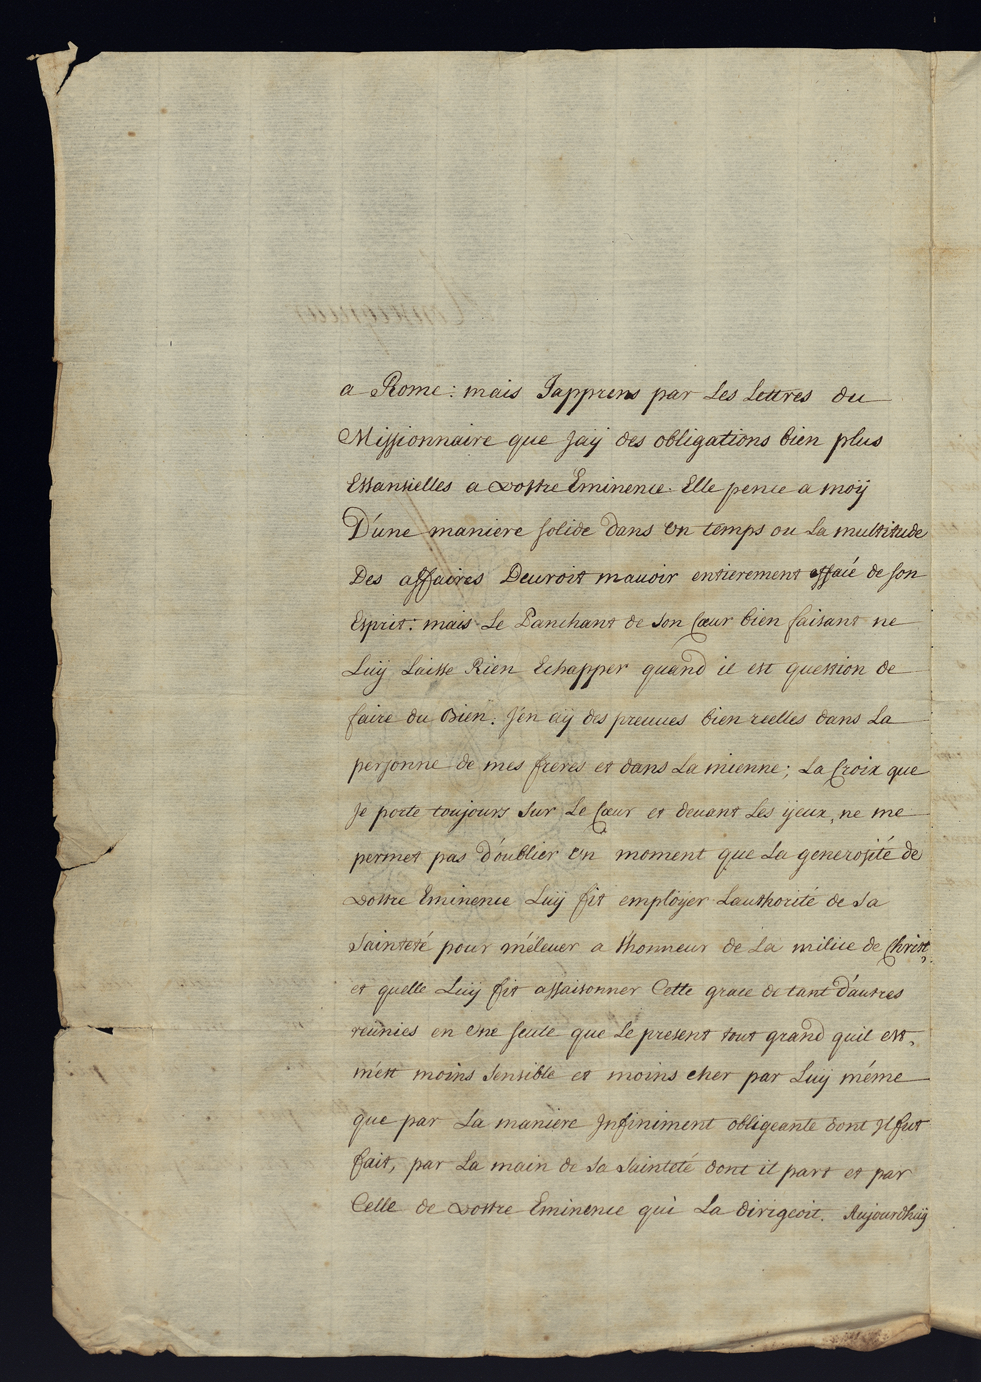 a Rome : mais Japprens par Les Lettres du
Missionnaire que jaÿ des obligations bien plus
Essansielles a vostre Eminence. Elle pence a moÿ
D'une maniere solide dans un temps ou La multitude
Des affaires Deuroit mauoir entierement effacé de son
Esprit : mais Le Panchant de Son Cœur bien faisant ne
Luÿ Laisse Rien Echapper quand il est question de
faire du Bien. J'en aÿ des preuues bien reelles dans La
personne de mes freres et dans La mienne ; La Croix que
Je porte toujours Sur Le Cœur et deuant Les ÿeux, ne me
permet pas d'oublier un moment que La generosité de
vostre Eminence Luÿ fit emploÿer Lauthorité de Sa
Sainteté pour m'éleuer a l'honneur de La milice de Christ,
et quelle Luÿ fit assaisonner Cette grace de tant d'autres
reunies en une seule que Le present tout grand quil est,
m'est moins Sensible et moins cher par Luÿ méme
que par La maniere Infiniment obligeante dont Il fut
fait, par La main de Sa Sainteté dont il part et par
Celle de vostre Eminence qui La dirigeoit. Aujourdhuÿ